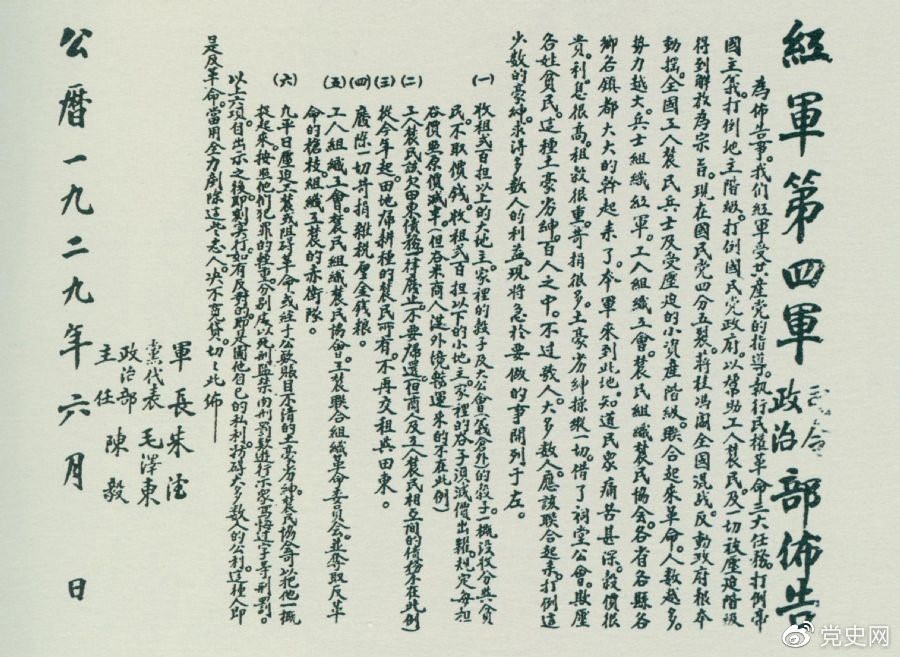 紅軍第四軍司令政治部佈告
為佈告事。我们紅軍受共産党的指導。執行民權革命三大任務。打倒帝
國主義。打倒地主階級。打倒國民党政府。以幫助工人農民及一切被壓迫階級
得到解放為宗旨。現在國民党四分五裂。蔣桂馮閻全國混战。反動政府根本
動摇。全國工人農民兵士及受壓迫的小資産階級。聯合起來革命。人數越多。
勢力越大。兵士組織紅軍。工人組織工會。農民組織農民協會。各省各縣各
鄉各鎮都大大的幹起來了。本軍來到此地。知道民眾痛苦甚深。穀價很
貴。利息很高。租穀很重。苛捐很多。土豪劣紳採缴一切。借了祠堂公會。欺壓
各姓貧民。這種土豪劣紳。百人之中。不过数人。大多数人應該聯合起來。打倒這
少数的豪紳。求得多数人的利益。現將急於要做的事開列于左。
(一) 收租弍百担以上的大地主。家裡的穀子及大公會(義倉外)的穀子一概没收分與貧
民。不取價钱。收租弍百担以下的小地主。家裡的谷子須減價出糶。規定每担
谷價照原價減半。(但谷米商人從外境輓運来的不在此例)
(二) 工人農民該欠田東債務。一律廢止。不要歸還。(但商人及工人農民相互間的債務不在此例)
(三) 從今年起。田地歸耕種的農民所有。不再交租與田東。
(四) 廢除一切苛捐雜税厘金钱粮。
(五) 工人組織工會。農民組織農民協會。工農联合組織革命委員会。並奪取反革
命的槍枝組織工農的赤衛隊。
(六) 凡平日壓迫工農或阻碍革命。或經手公款賬目不清的土豪劣紳。農民協會可以把他一概
捉起来。按照他们犯罪的輕重。分别處以死刑監禁肉刑罰款遊行示家寫悔过字等刑罰。
以上六項自出示之後。即刻实行。如有反對的。即是圖他自己的私利。妨碍大多数人的公利。這種人即
是反革命。當用全力剷除這些惡人。决不寬貸。切切此佈
軍長 朱德
黨代表 毛澤東
政治部主任 陳毅
公曆一九二九年六月 日
党史网